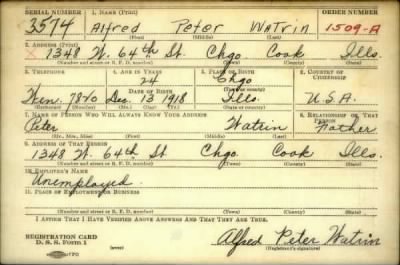 SERIAL NUMBER 1. NAME (Print) ORDER NUMBER
3574 Alfred Peter Watrin 1509-A
(First) (Middle) (Last)
2. ADDRESS (Print)
X 1348 W. 64th St. Chgo Cook Ills.
(Number and street or R. F. D. number) (Town) (County) (State)
3. TELEPHONE 4. AGE IN YEARS 5. PLACE OF BIRTH 6. COUNTRY OF CITIZENSHIP
24 Chgo
DATE OF BIRTH (Town or county)
7820 Dec. 13 1918 Ills U.S.A.
(Mo.) (Day) (Yr.) (State or country)
7. NAME OF PERSON WHO WILL ALWAYS KNOW YOUR ADDRESS 8. RELATIONSHIP OF THAT PERSON
Peter Watrin Father
(Mr., Mrs., Miss) (First) (Middle) (Last)
9. ADDRESS OF THAT PERSON
1348 W. 64th St Chgo Cook Ills.
(Number and street or R. F. D. number) (Town) (County) (State)
10. EMPLOYER'S NAME
Unemployed.
11. PLACE OF EMPLOYMENT OR BUSINESS
(Number and street or R. F. D. number) (Town) (County) (State)
I AFFIRM THAT I HAVE VERIFIED ABOVE ANSWERS AND THAT THEY ARE TRUE.
REGISTRATION CARD
D. S. S. Form 1 (over) Alfred Peter Watrin
(Registrant's signature)